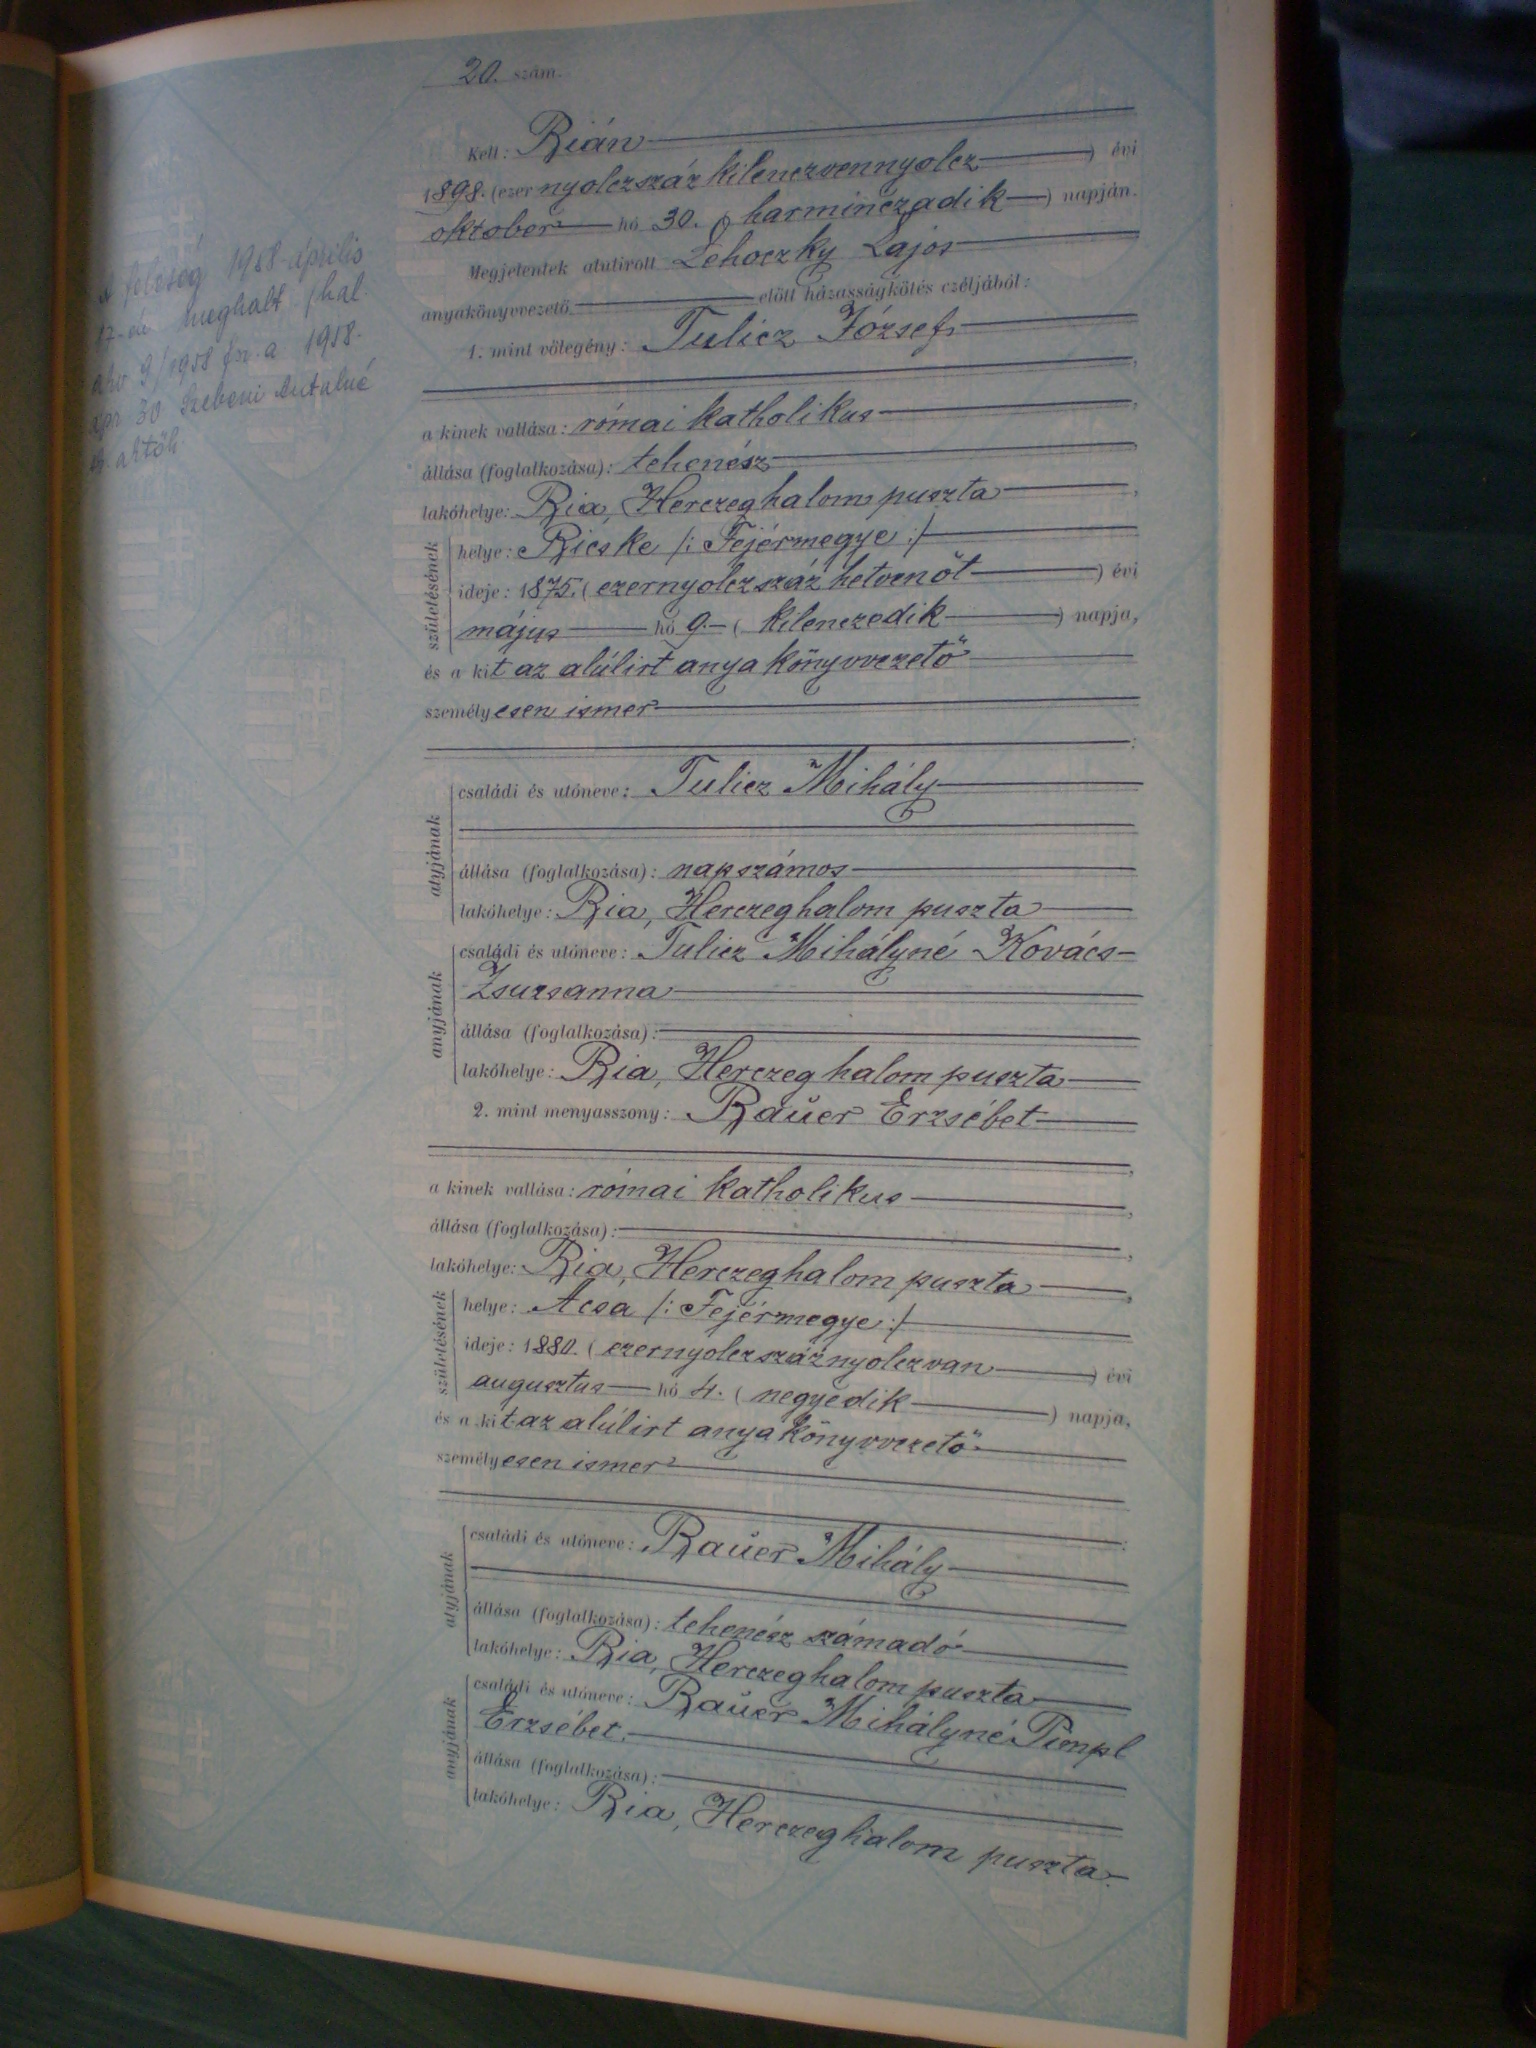 20. szám.
Kelt: Bián
1898. (ezer nyolczszáz kilenczvennyolcz) évi
oktober hó 30. (harminczadik) napján.
Megjelentek alulirott Lehoczky Lajos
anyakönyvvezető előtt házasságkötés czéljából:
1. mint vőlegény: Tulicz József,
a kinek vallása: római katholikus,
állása (foglalkozása): tehenész,
lakóhelye: Bia, Herczeghalom puszta,
születésének
helye: Bicske /: Fejérmegye :/
ideje: 1875. (ezernyolczszáz hetvenöt) évi
május hó 9. (kilenczedik) napja,
és a kit az alúlirt anyakönyvvezető
személyesen ismer;
atyjának
családi és utóneve: Tulicz Mihály
állása (foglalkozása): napszámos
lakóhelye: Bia, Herczeghalom puszta
anyjának
családi és utóneve: Tulicz Mihályné Kovács
Zsuzsanna
állása (foglalkozása):
lakóhelye: Bia, Herczeghalom puszta
2. mint menyasszony: Bauer Erzsébet,
a kinek vallása: római katholikus,
állása (foglalkozása):,
lakóhelye: Bia, Herczeghalom puszta,
születésének
helye: Acsa /: Fejérmegye :/
ideje: 1880. (ezernyolczszáznyolczvan) évi
augusztus hó 4. (negyedik) napja,
és a kit az alúlirt anyakönyvvezető
személyesen ismer:
atyjának
családi és utóneve: Bauer Mihály
állása (foglalkozása): tehenész számadó
lakóhelye: Bia, Herczeghalom puszta
anyjának
családi és utóneve: Bauer Mihályné Pimpl
Erzsébet.
állása (foglalkozása):
lakóhelye: Bia, Herczeghalom puszta.
A feleség 1958 április
17-én meghalt (hal.
akv 9/1958 fsz. a 1958.
ápr 30 Szebeni Antalné